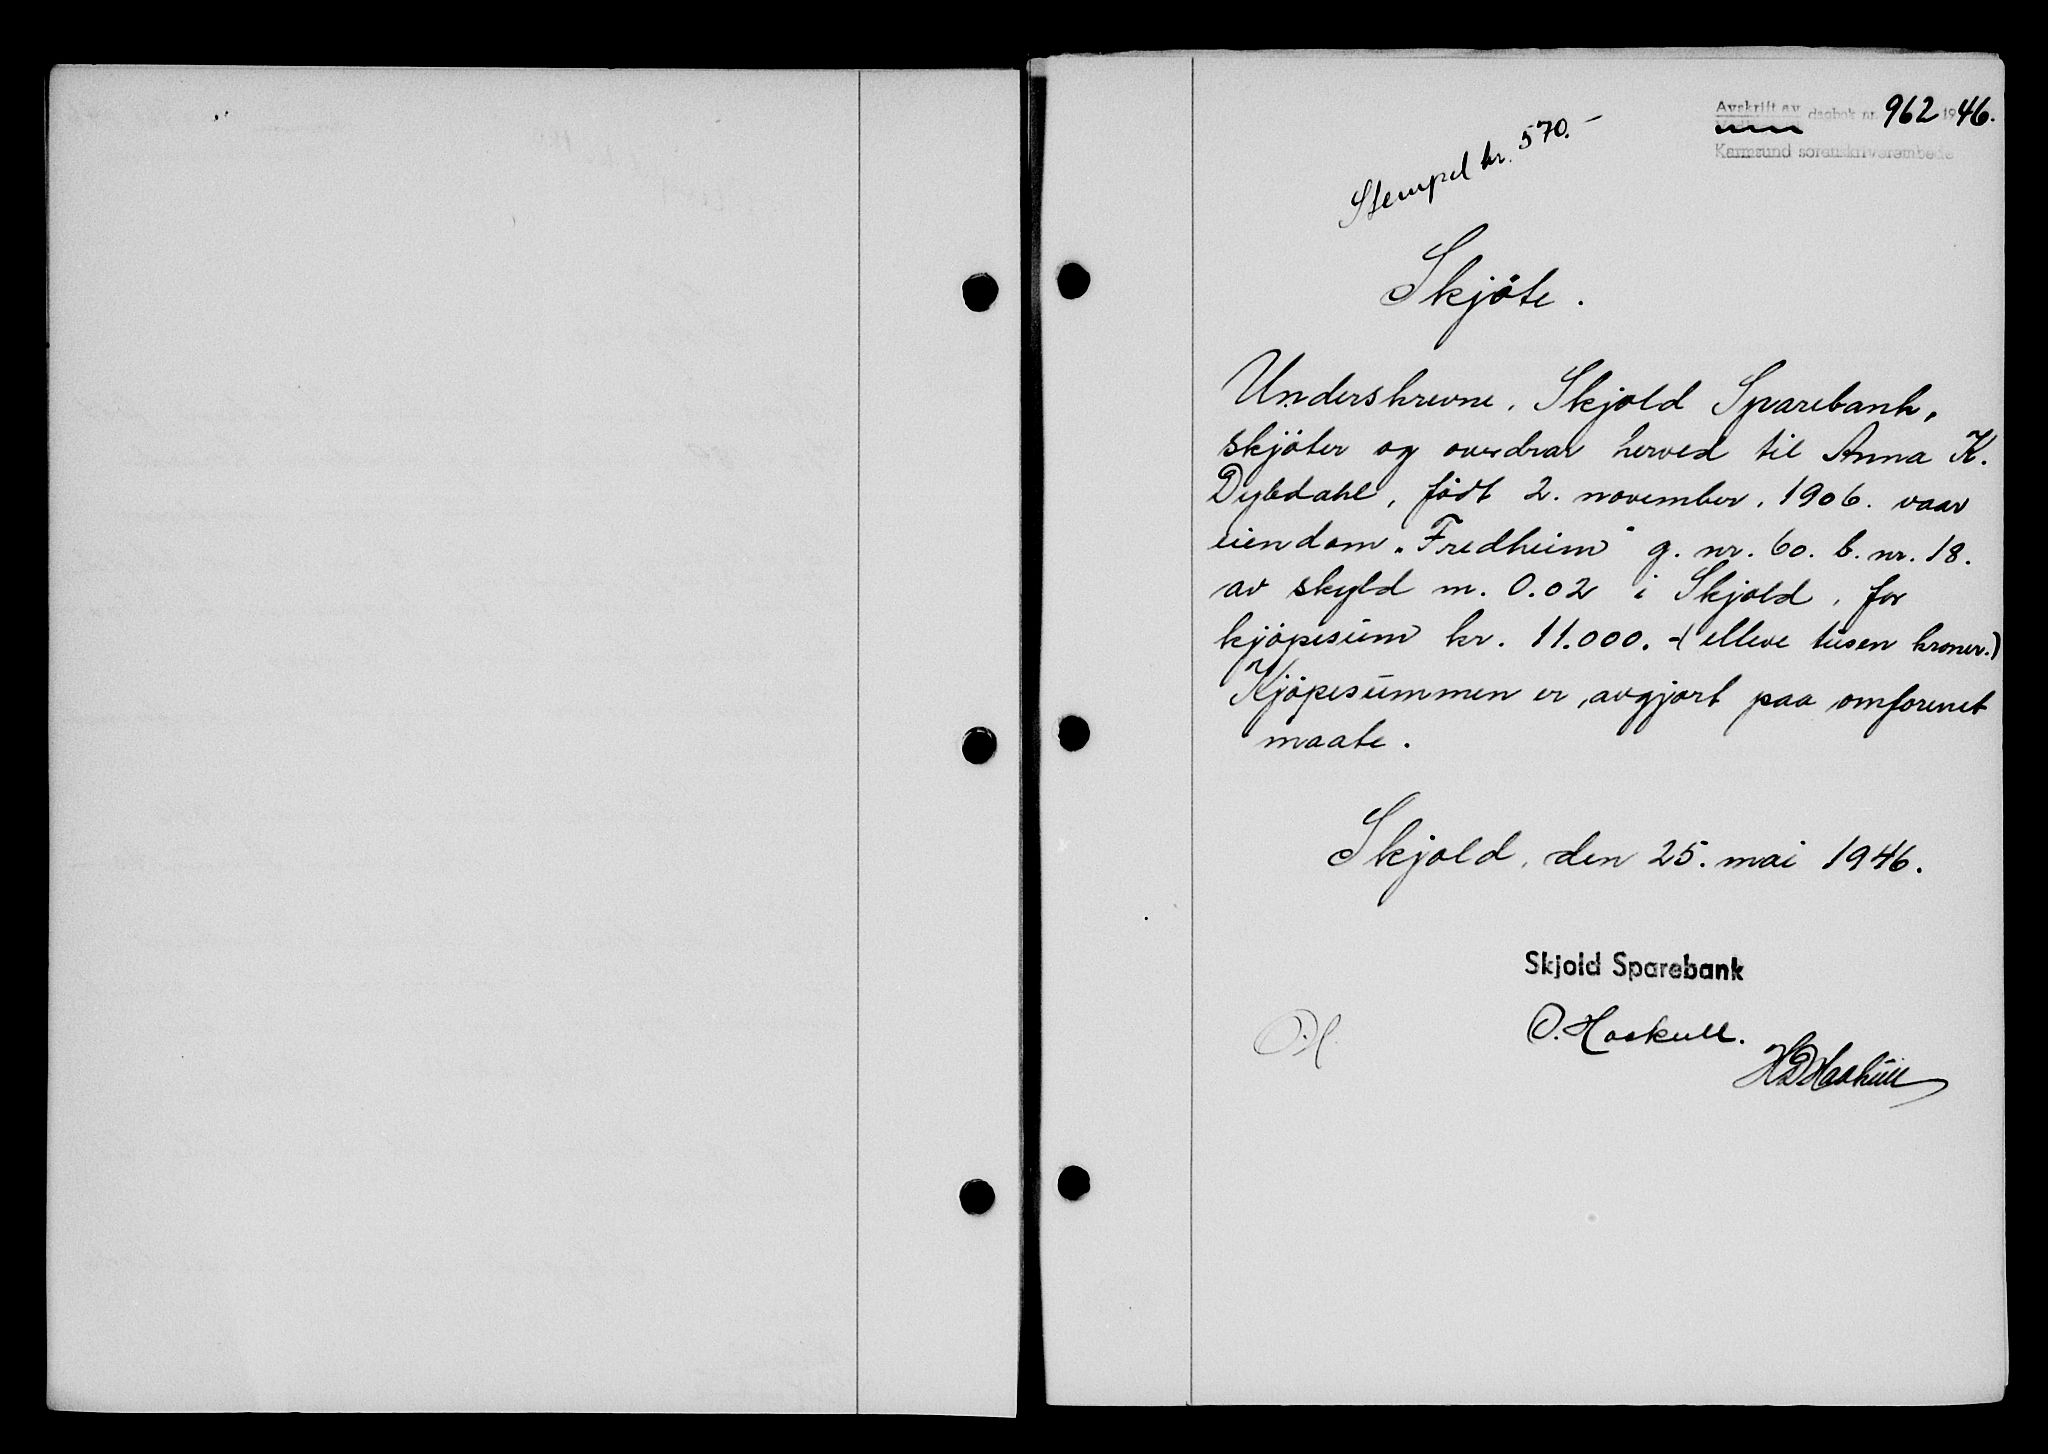 Avskrift av dagbok nr. 962 1946.
Karmsund sorenskriverembede
Stempel kr. 570.-
Skjöte.
Underskrevne, Skjold Sparebank,
skjöter og overdrar herved til Anna K.
Dybdahl, født 2. november, 1906. vaar
eiendom „Fredheim" g. nr. 60. b. nr. 18.
av skyld m. 0.02 i Skjold, for
kjöpesum kr. 11.000.-(elleve tusen kroner.)
Kjöpesummen er avgjort paa omforenet
maate.
Skjold, den 25. mai 1946.
Skjold Sparebank
O. Haskull.
O.H.